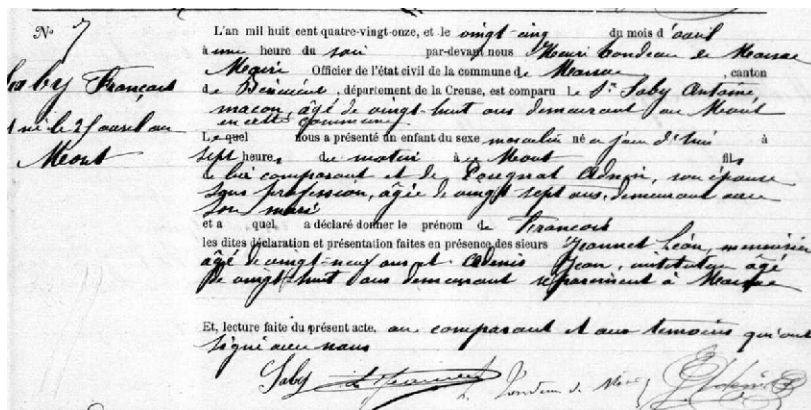 No 7
Saby François
né le 25 avril au
Mont
L'an mil huit cent quatre-vingt-onze, et le vingt-cinq du mois d'avril
à une heure du soir par-devant nous Henri Tondeau de
Maire Officier de l'état civil de la commune de, canton
de Bénévent, département de la Creuse, est comparu le Sr Saby Antoine
maçon, âgé de vingt-huit ans demeurant au Mont
en cette commune
Lequel nous a présenté un enfant du sexe masculin né ce jour d'hui à
sept heures du matin à ce Mont fils
de lui comparant et de Pougnat, son épouse
sans profession, âgée de vingt sept ans, demeurant avec
son mari
et a quel a déclaré donner le prénom de François
les dites déclaration et présentation faites en présence des sieurs Jeannet Léon, menuisier
âgé de vingt-neuf ans et Jean, instituteur âgé
de vingt-huit ans demeurant séparément à
Et, lecture faite du présent acte, au comparant et aux témoins qui ont
signé avec nous
Saby L Jeannet H. Tondeau de